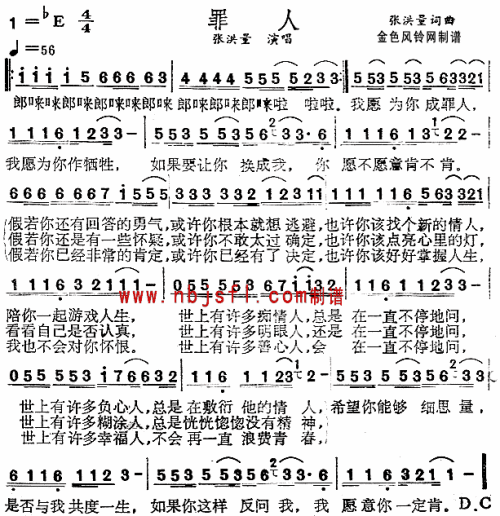 1=♭E 4/4
罪人
张洪量词曲
♩=56
张洪量 演唱
金色风铃网制谱
i i i i 5 6 6 6 6 3 | 4 4 4 4 5 5 5 5 2 3 3 :| 5 5 3 5 5 3 5 6 3 3 2 1
郎唻来郎唻来郎唻来郎唻来郎唻来啦 啦啦。我愿 为你 成罪人,
1 1 1 6 1 2 3 3 - | 5 5 3 5 3 5 5 6 3 3 · 6 | 1 1 1 1 1 3 2 2 -
我愿为你作牺牲, 如果要让你 换成我, 你 愿不愿意肯不 肯。
6 6 6 6 6 6 6 7 i 5 5 5 | 3 3 3 3 3 2 1 2 3 1 1 | 1 1 1 1 1 6 5 6 3 3 2 1
假若你还有回答的勇气,或许你根本就想 逃避,也许你该找个新的情人,
假若你还是有一些怀疑,或许你不敢太过 确定,也许你该点亮心里的灯,
假若你已经非常的肯定,或许你已经有了 决定,也许你该好好掌握人生,
www.nbjsfl.com制谱
1 1 1 6 1 6 3 2 1 1 1 - | 0 5 5 5 5 3 6 7 i i 3 2 | 1 1 1 6 1 2 3 3 -
陪你一起游戏人生, 世上有许多痴情人,总是 在一直不停地问,
看看自己是否认真, 世上有许多明眼人,还是 在一直不停地问,
我也不会对你怀恨。 世上有许多善心人,会 在一直不停地问,
0 5 5 5 5 3 i 7 6 6 3 2 | 1 1 6 1 1 2 3 · 1 | 5 5 5 3 5 6 3 3 -
世上有许多负心人,总是在敷衍 他的情 人,希望你能够 细思 量,
世上有许多糊涂人,总是恍恍惚惚没有精 神,
世上有许多幸福人,不会 再一直 浪费青 春,
6 1 1 6 1 1 2 3 - | 5 5 3 5 3 5 5 6 3 3 · 6 | 1 1 1 6 1 2 1 1 - :|
是否与我 共度一生, 如果你这样 反问 我, 我 愿意你一定肯。D.C